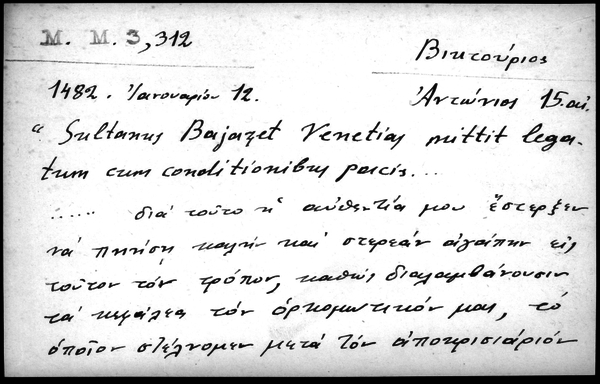 M. M. 3, 312
Βικτούριος
1482. Ἰανουαρίου 12.
Ἀντώνιος 15. αἰ.
" Sultanus Bajazet Venetias mittit lega-
tum cum conditionibus pacis...
...... διά τοῦτο ἡ αὐθεντία μου ἔστερξεν
νά ποιήσῃ καλήν καί στερεάν ἀγάπην εἰς
τοῦτον τόν τρόπον, καθώς διαλαμβάνουσιν
τά κεφάλεα τόν ὁρκομωτικόν μας, τό
ὁποῖον στέλνομεν μετά τόν ἀποκρισιάριόν